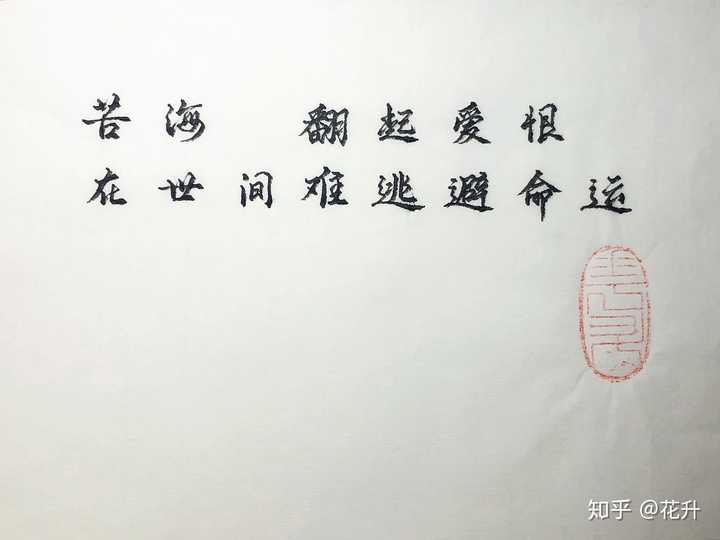 苦海 翻起爱恨
在世间难逃避命运
知乎 @花升